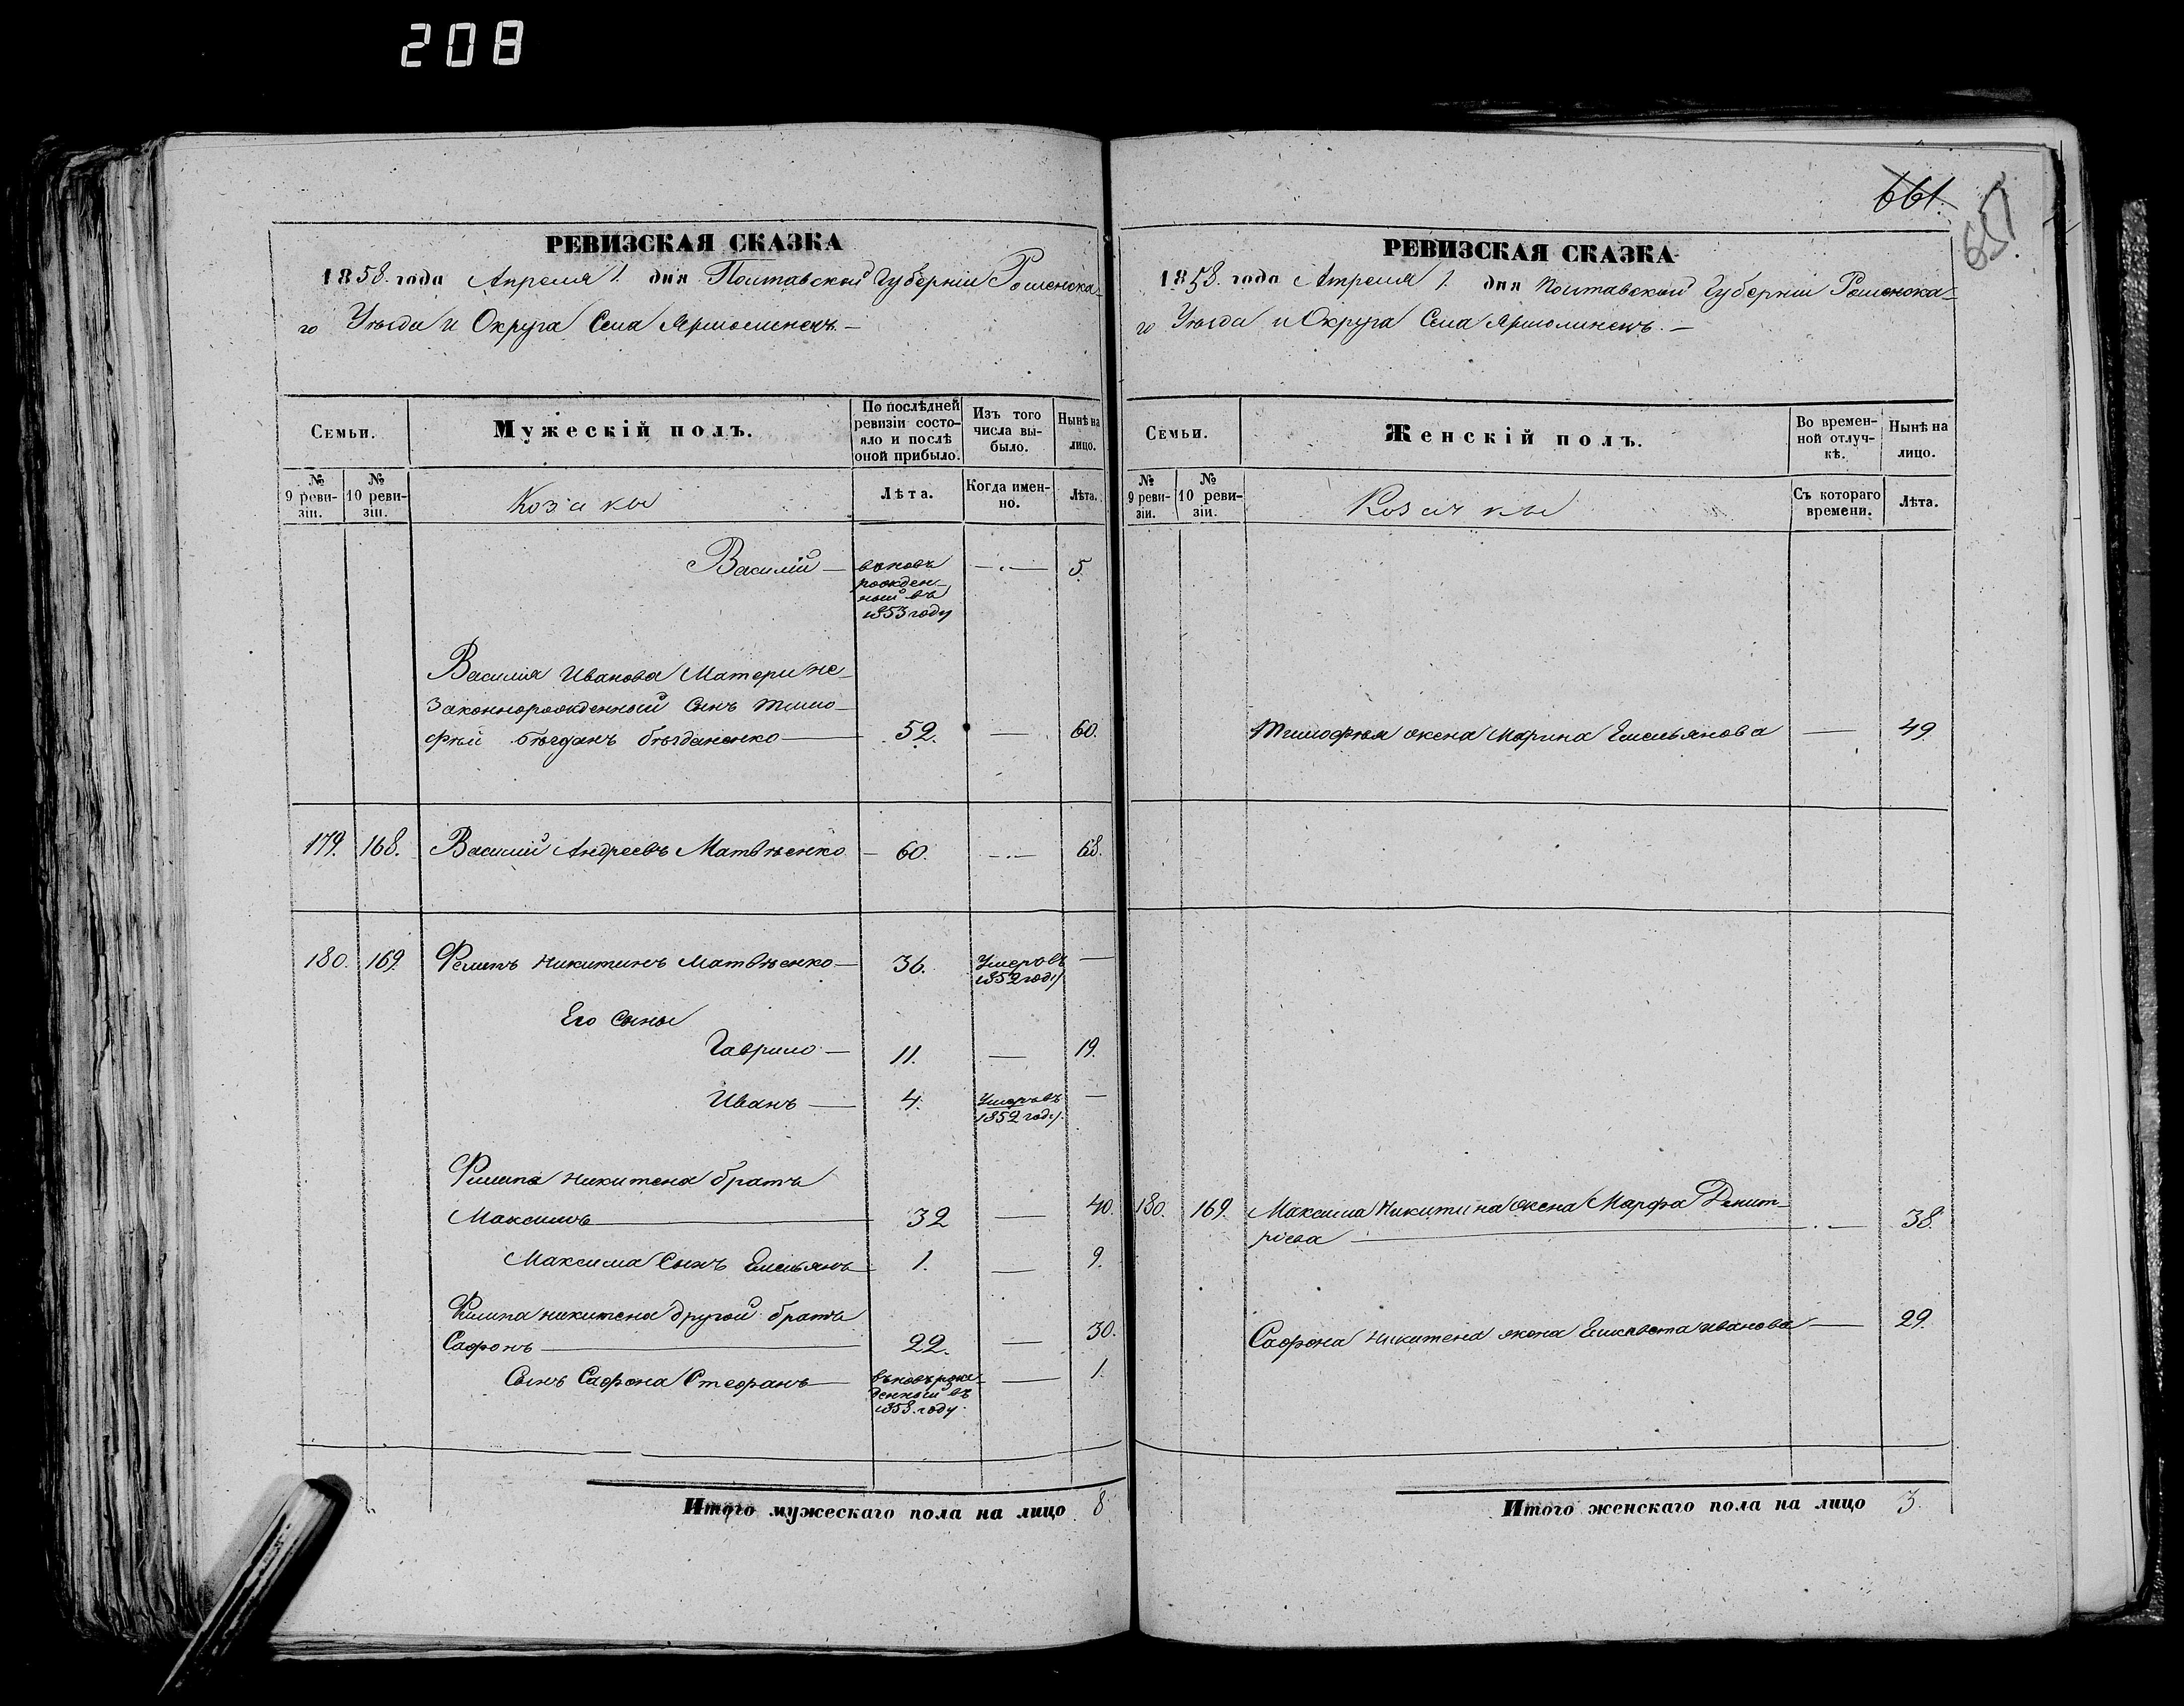 208
661.
657.
РЕВИЗСКАЯ СКАЗКА
1858. года Апреля 1. дня Полтавской Губернiи Роменска-
го Уѣзда и Округа Села Ярмолинецъ. —
Семьи.
Мужескiй полъ.
По послѣдней ревизiи состояло и послѣ оной прибыло.
Изъ того числа выбыло.
Нынѣ на лицо.
№ 9 ревизiи.
№ 10 ревизiи.
Козаки
Лѣта.
Когда именно.
Лѣта.
Василiй — вновь — . — 5.
рожден-
ный въ
1853 году
Василiя Иванова Матери не-
законнорожденный Сынъ Тимо-
фѣй Богданъ Богданенко — 52. — 60.
179. 168. Василiй Андреевъ Матвѣенко — 60. — . — 68.
180. 169. Филипъ Никитинъ Матвѣенко — 36. Умеръ въ —
1852 году
Его Сыны
Гаврило — 11. — 19.
Иванъ — 4. Умеръ въ —
1852 году.
Филипа Никитена братъ
Максимъ — 32 — 40.
Максима Сынъ Емельянъ — 1. — 9.
Филипа Никитена другой братъ
Сафонъ — 22. — 30.
Сынъ Сафона Стефанъ — вновь рож- — 1.
денный въ
1858. году.
Итого мужескаго пола на лицо 8.
РЕВИЗСКАЯ СКАЗКА
1858. года Апреля 1. дня Полтавской Губернiи Роменска-
го Уѣзда и Округа Села Ярмолинецъ. —
Семьи.
Женскiй полъ.
Во временной отлучкѣ.
Нынѣ на лицо.
№ 9 ревизiи.
№ 10 ревизiи.
Козачки
Съ котораго времени.
Лѣта.
Тимофея жена Марина Емельянова — 49.
180. 169. Максима Никитина жена Марфа Демит-
рiева — . — 38.
Сафона Никитена жена Елисавета Иванова — 29.
Итого женскаго пола на лицо 3.